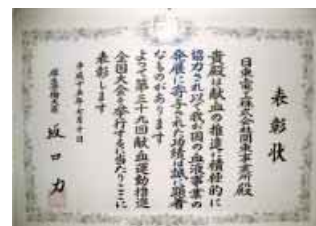 表彰状
日東電工株式会社関東事業所殿
貴殿は献血の推進に積極的に
協力され以て我が国の血液事業の
発展に寄与された功績は誠に顕著
なものがあります
よって第三十九回献血運動推進
全国大会を挙行するに当たりここに
表彰します
平成十五年七月十日
厚生労働大臣
坂口力